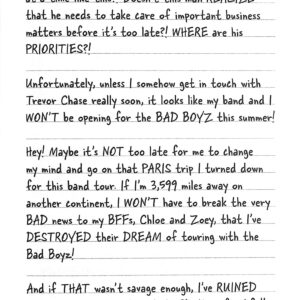 that he needs to take care of important business
matters before it's too late?! WHERE are his
PRIORITIES?!
Unfortunately, unless I somehow get in touch with
Trevor Chase really soon, it looks like my band and I
WON'T be opening for the BAD BOYZ this summer!
Hey! Maybe it's NOT too late for me to change
my mind and go on that PARIS trip I turned down
for this band tour. If I'm 3,599 miles away on
another continent, I WON'T have to break the very
BAD news to my BFFs, Chloe and Zoey, that I've
DESTROYED their DREAM of touring with the
Bad Boyz!
And if THAT wasn't savage enough, I've RUINED